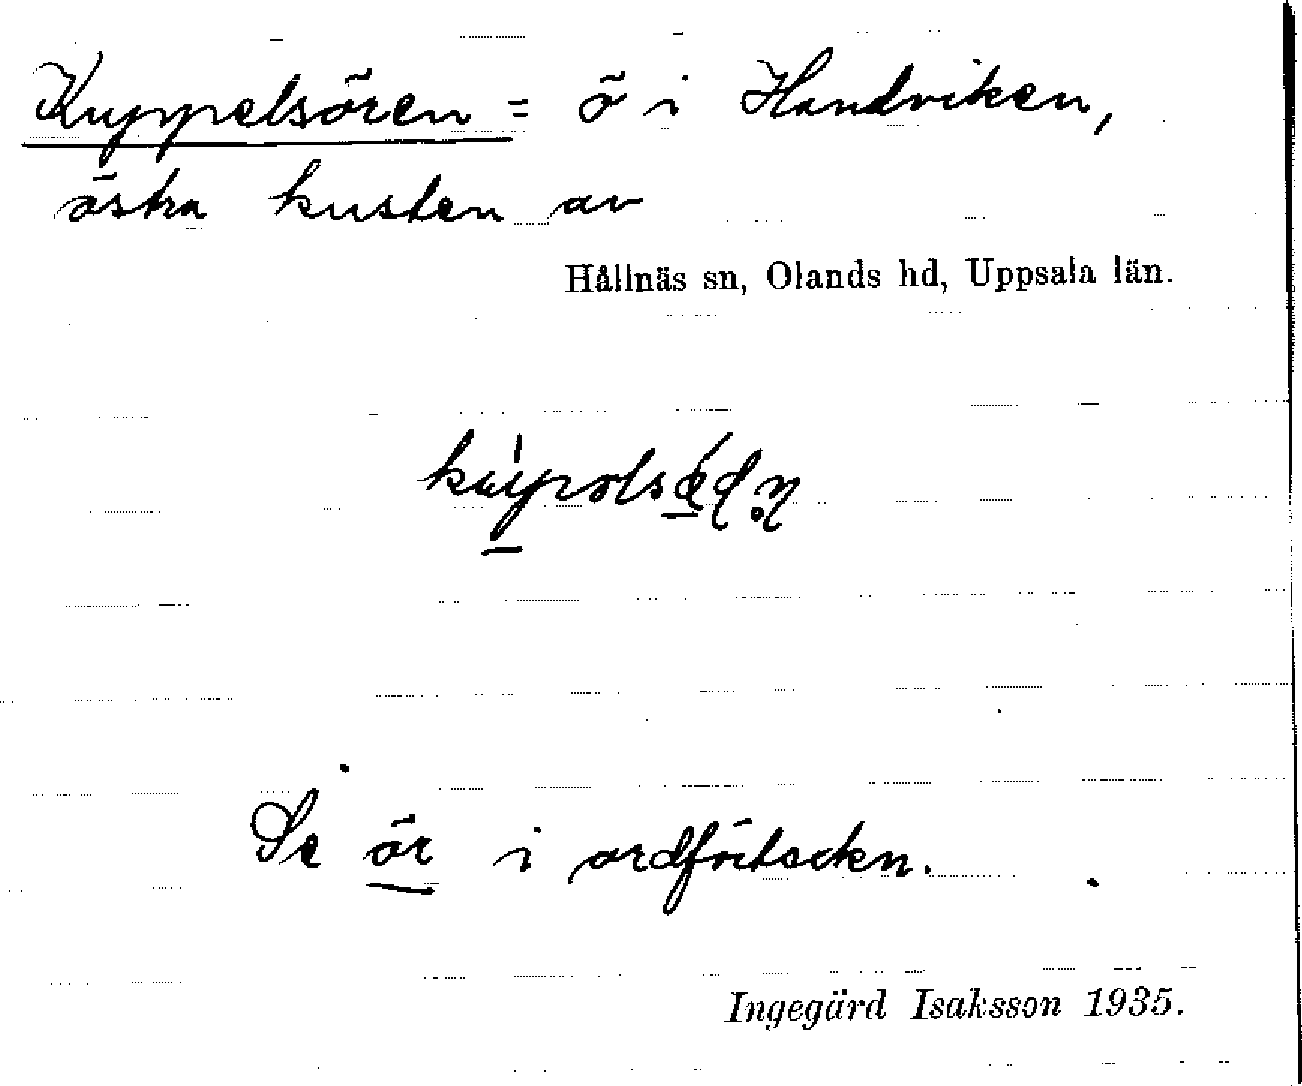 Kuppelsören = ö i Handviken,
östra kusten av
Hållnäs sn, Olands hd, Uppsala län.
Se ör i ordförteckn.
Ingegärd Isaksson 1935.